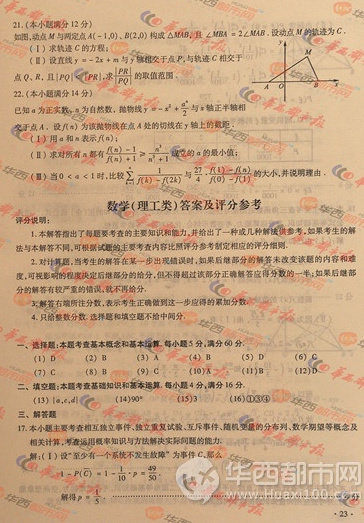 21. (本小题满分 12 分)
如图,动点 M 与两定点 A(-1,0)、B(2,0) 构成 △MAB, 且 ∠MBA = 2∠MAB. 设动点 M 的轨迹为 C.
(Ⅰ) 求轨迹 C 的方程;
(Ⅱ) 设直线 y = -2x + m 与 y 轴相交于点 P, 与轨迹 C 相交于
点 Q、R, 且 |PQ| < |PR|, 求 |PR|/|PQ| 的取值范围.
y
M
A O B x
22. (本小题满分 14 分)
已知 a 为正实数, n 为自然数, 抛物线 y = -x² + aⁿ/2 与 x 轴正半轴相
交于点 A. 设 f(n) 为该抛物线在点 A 处的切线在 y 轴上的截距.
(Ⅰ) 用 a 和 n 表示 f(n);
(Ⅱ) 求对所有 n 都有 成立的 a 的最小值;
(Ⅲ) 当 0 < a < 1 时, 比较 与 的大小, 并说明理由.
数学(理工类)答案及评分参考
评分说明:
1. 本解答指出了每题要考查的主要知识和能力, 并给出了一种或几种解法供参考, 如果考生的解
法与本解答不同, 可根据试题的主要考查内容比照评分参考制定相应的评分细则.
2. 对计算题, 当考生的解答在某一步出现错误时, 如果后继部分的解答未改变该题的内容和难
度, 可视影响的程度决定后继部分的给分, 但不得超过该部分正确解答应得分数的一半; 如果后继部
分的解答有较严重的错误, 就不再给分.
3. 解答右端所注分数, 表示考生正确做到这一步应得的累加分数.
4. 只给整数分数. 选择题和填空题不给中间分.
一、选择题: 本题考查基本概念和基本运算. 每小题 5 分, 满分 60 分.
(1) D (2) B (3) A (4) B (5) D (6) C
(7) D (8) C (9) C (10) B (11) D (12) A
二、填空题: 本题考查基础知识和基本运算. 每小题 4 分, 满分 16 分.
(13) {a,c,d} (14) 90° (15) (16) ①③④
三、解答题
17. 本小题主要考查相互独立事件、独立重复试验、互斥事件、随机变量的分布列、数学期望等概念及
相关计算, 考查运用概率知识与方法解决实际问题的能力.
解: (Ⅰ) 设“至少有一个系统不发生故障”为事件 C, 那么
1 - P(C̄) = 1 - 1/10 · p = 49/50
解得 p = 1/5
华西都市网
www.Huaxi100.com
· 23 ·